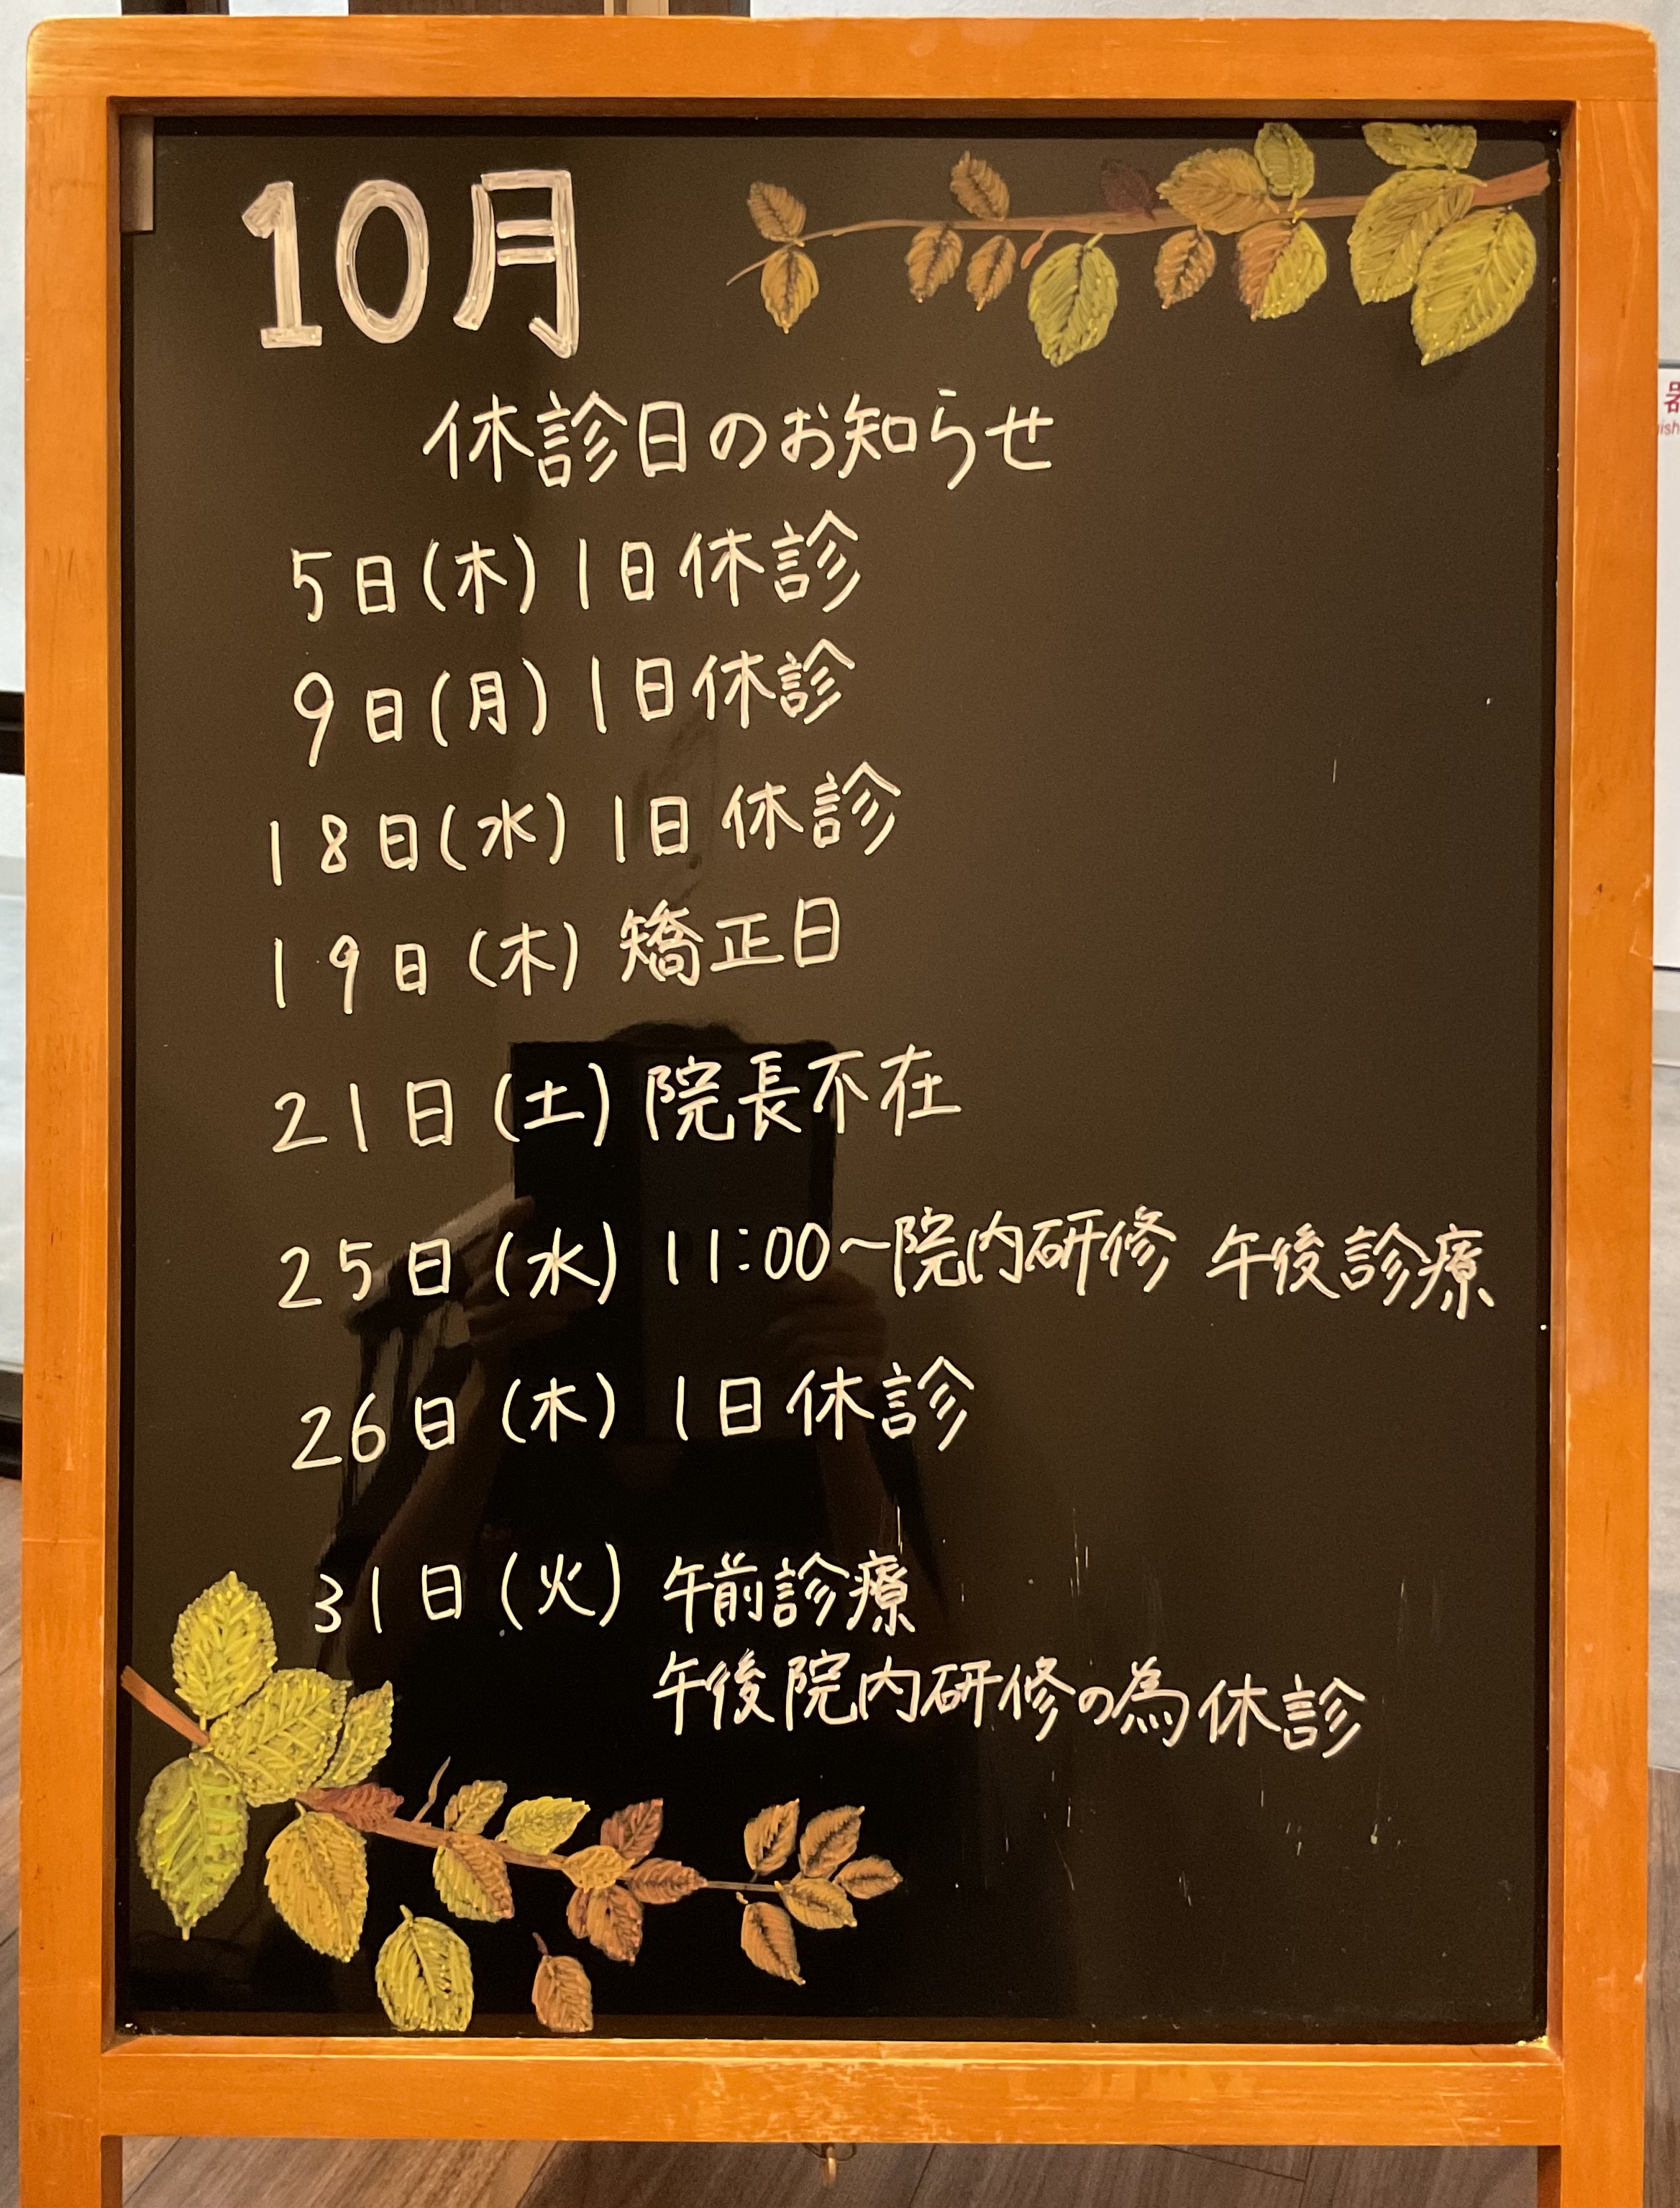 10月
休診日のお知らせ
5日(木) 1日休診
9日(月) 1日休診
18日(水) 1日休診
19日(木) 矯正日
21日(土) 院長不在
25日(水) 11:00〜院内研修 午後診療
26日(木) 1日休診
31日(火) 午前診療
午後院内研修の為休診
器
ish